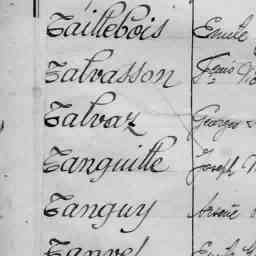 Taillebois Emile
Talvasson
Talvaz Georges
Tanguille Joseph
Tanguy Arsène